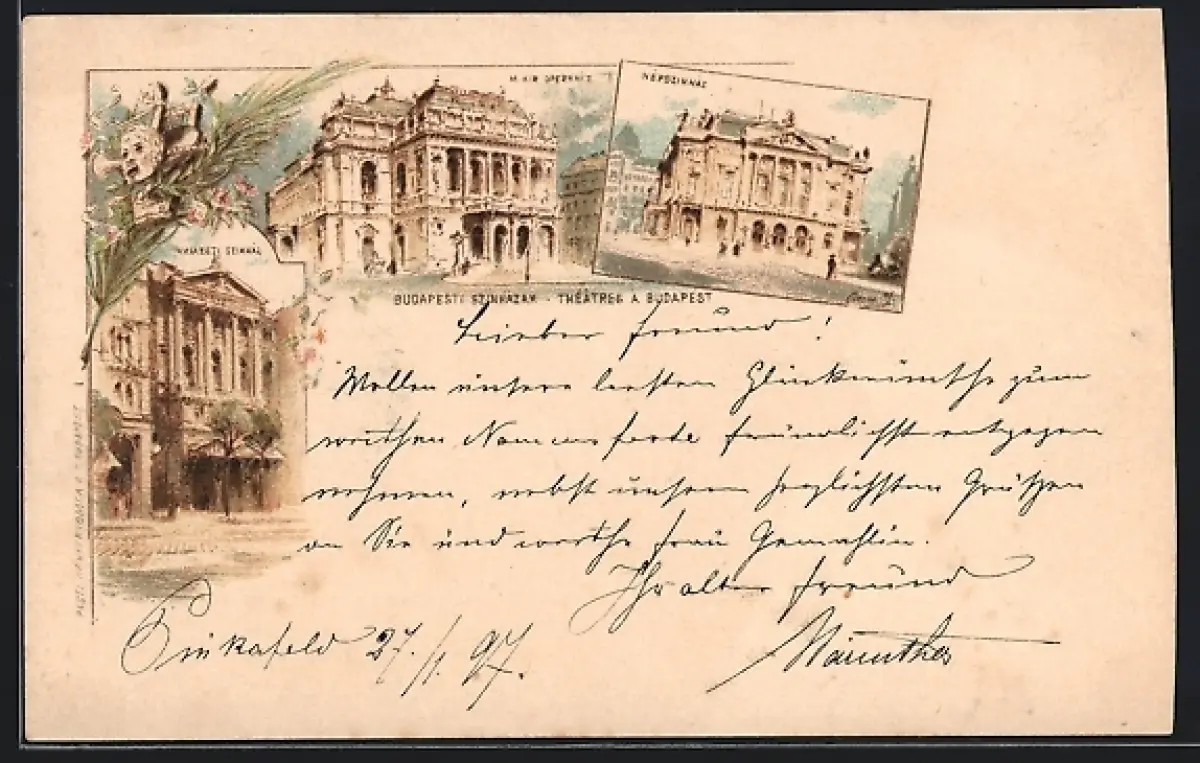 M. KIR. OPERAHÁZ
NÉPSZINHÁZ
NEMZETI SZINHÁZ
BUDAPESTI SZINHÁZAK - THÉÂTRES A BUDAPEST
Lieber Freund!
Wollen unsere besten Glückwünsche zum
werthen Namensfeste freundlichst entgegen
nehmen, nebst unsern herzlichsten Grüßen
an Sie und werthe Frau Gemahlin.
Ihr alter Freund
Pinkafeld 27./1. 97.